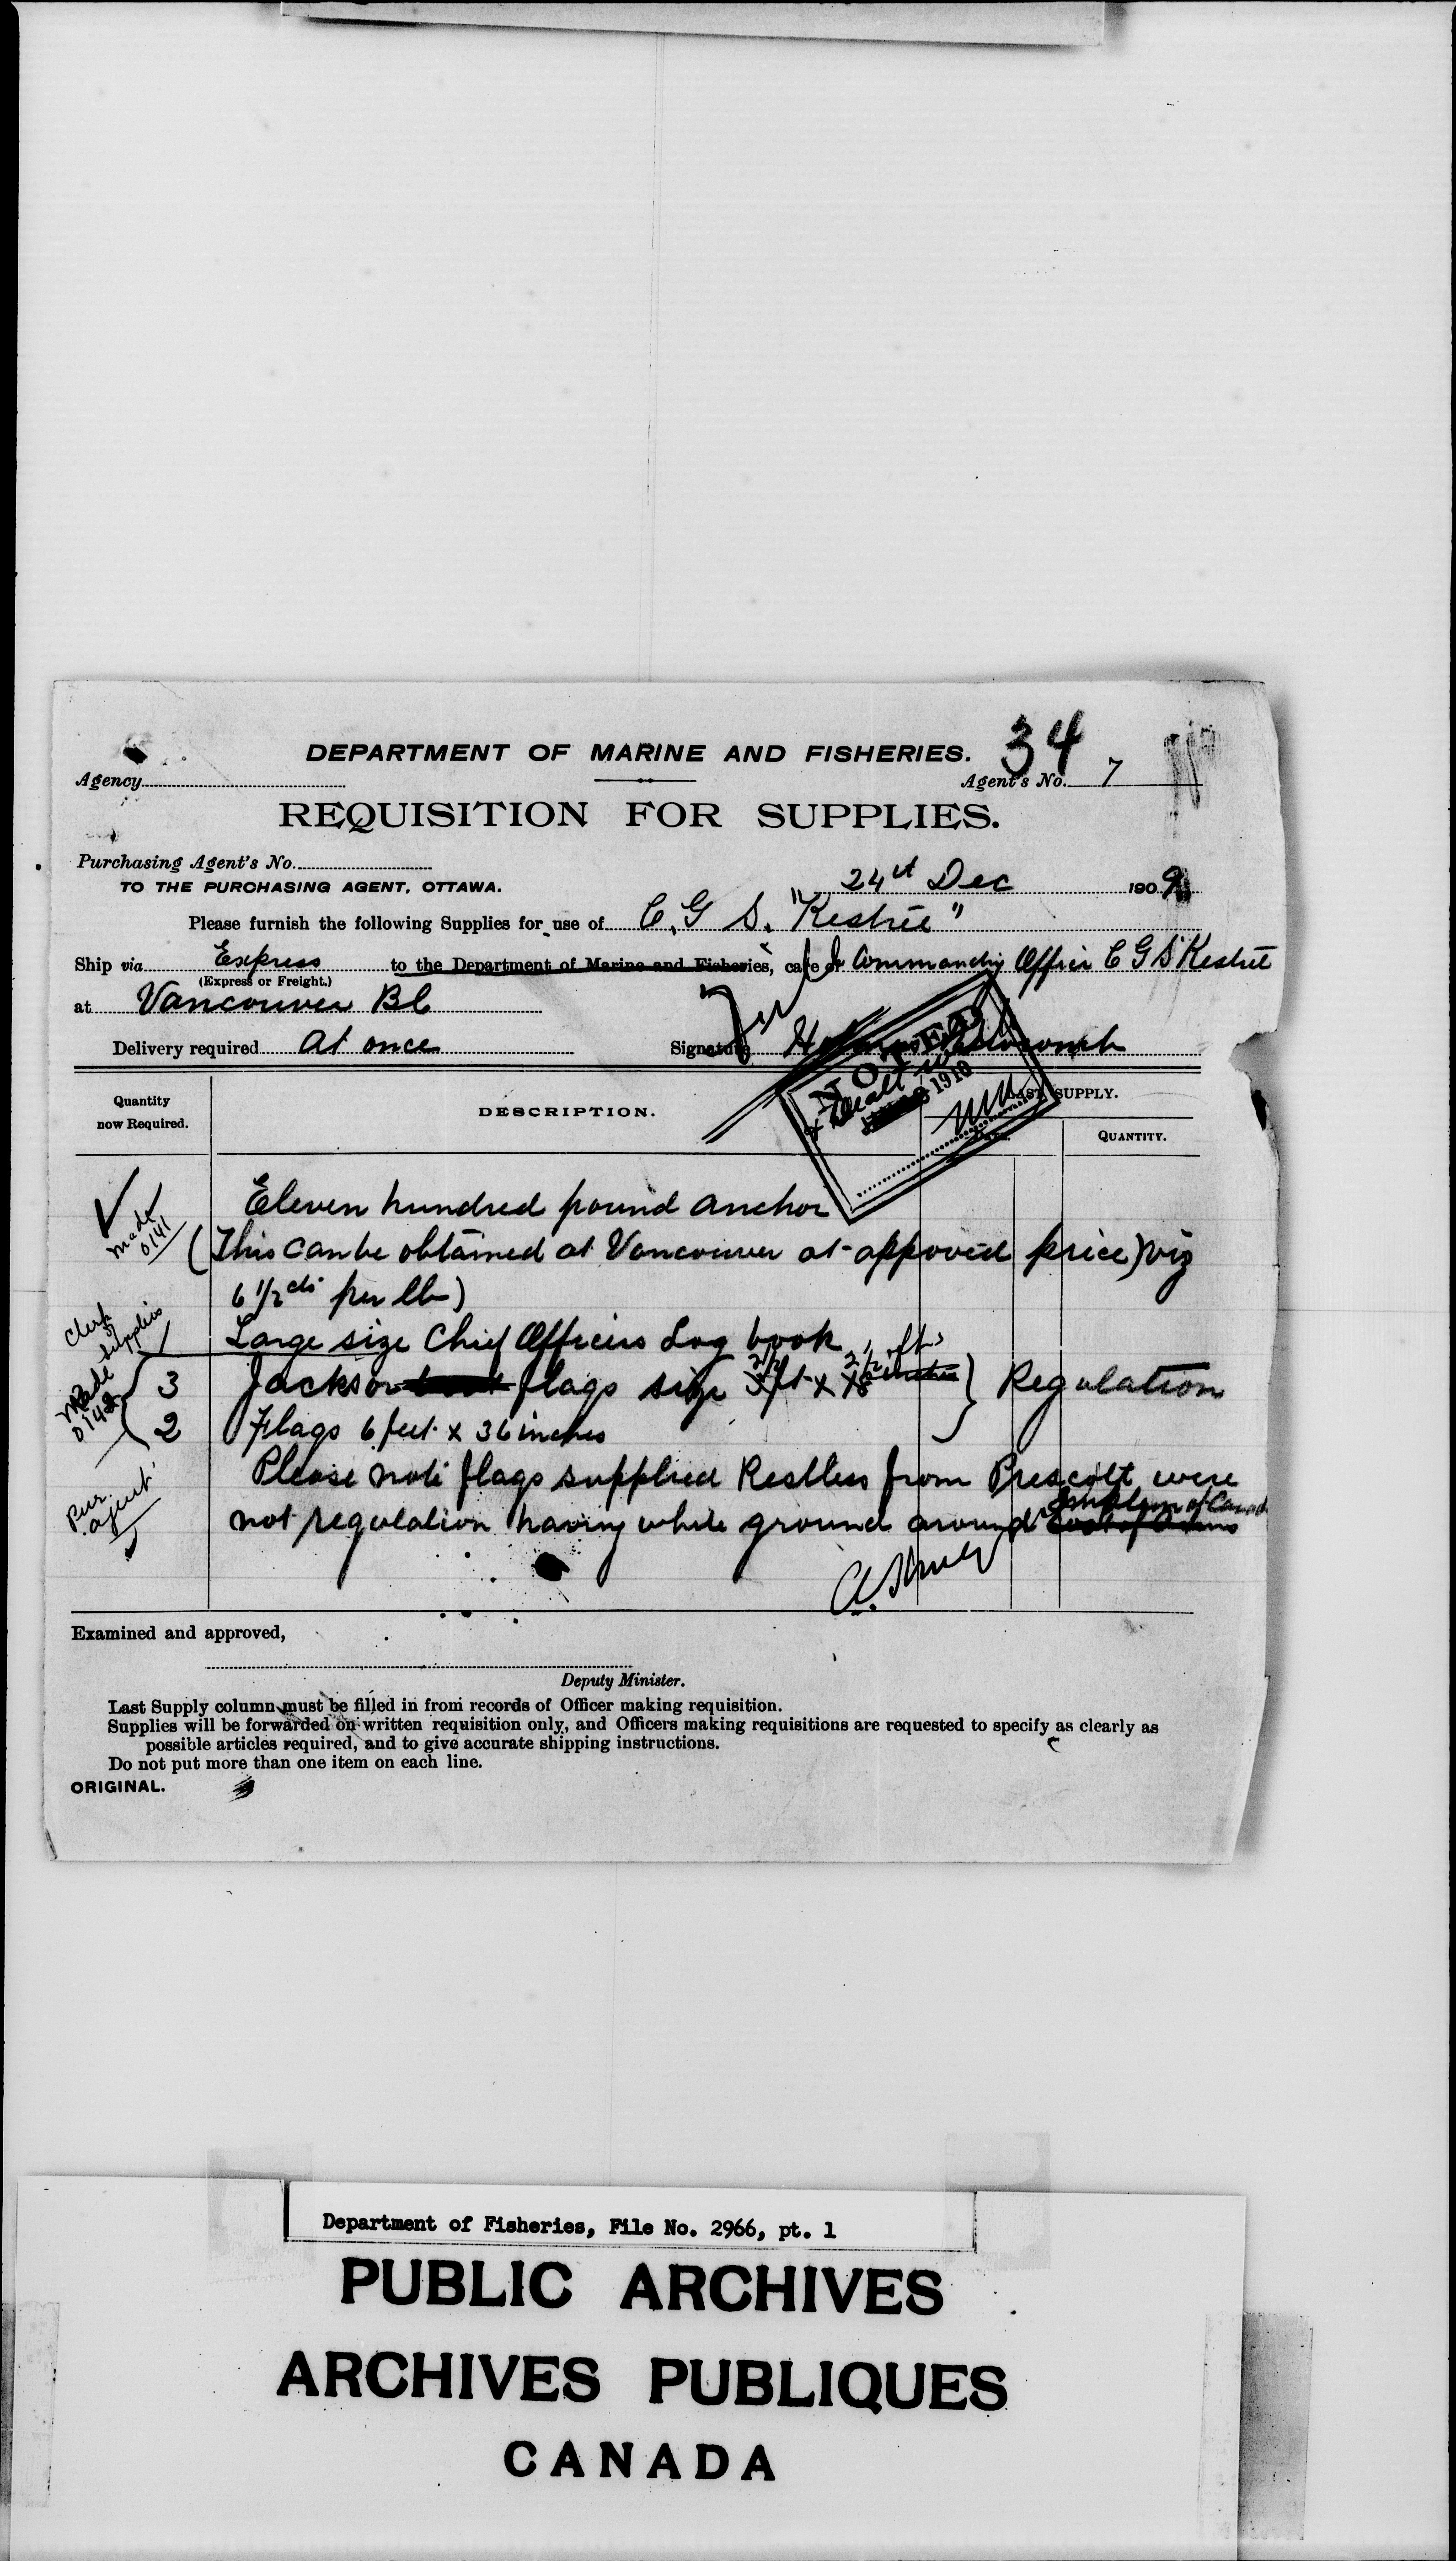 DEPARTMENT OF MARINE AND FISHERIES.
34
Agency
Agent's No. 7
REQUISITION FOR SUPPLIES.
Purchasing Agent's No.
TO THE PURCHASING AGENT, OTTAWA.
24st Dec 1909
Please furnish the following Supplies for use of C. G. S. "Kestrel"
Ship via Express to the Department of Marine and Fisheries, care of Commanding Officer C G S Kestrel
(Express or Freight.)
at Vancouver BC
Delivery required At once
Signature Holmes Newcomb
NOTED
1910
Quantity now Required.
DESCRIPTION.
LAST SUPPLY.
DATE.
QUANTITY.
Eleven hundred pound anchor
made 0141
(This can be obtained at Vancouver at approved price) viz
6 1/2 cts per lb)
Clerk Supplies
1 Large size Chief Officers Log book
Made 0142
3 Jacks or flags size 2 1/2 ft x 2 1/2 ft } Regulation
2 Flags 6 feet x 36 inches
Please note flags supplied Restless from Prescott were
Pur. agent
not regulation having white ground around Emblem of Canada
Examined and approved,
Deputy Minister.
Last Supply column must be filled in from records of Officer making requisition.
Supplies will be forwarded on written requisition only, and Officers making requisitions are requested to specify as clearly as
possible articles required, and to give accurate shipping instructions.
Do not put more than one item on each line.
ORIGINAL.
Department of Fisheries, File No. 2966, pt. 1
PUBLIC ARCHIVES
ARCHIVES PUBLIQUES
CANADA